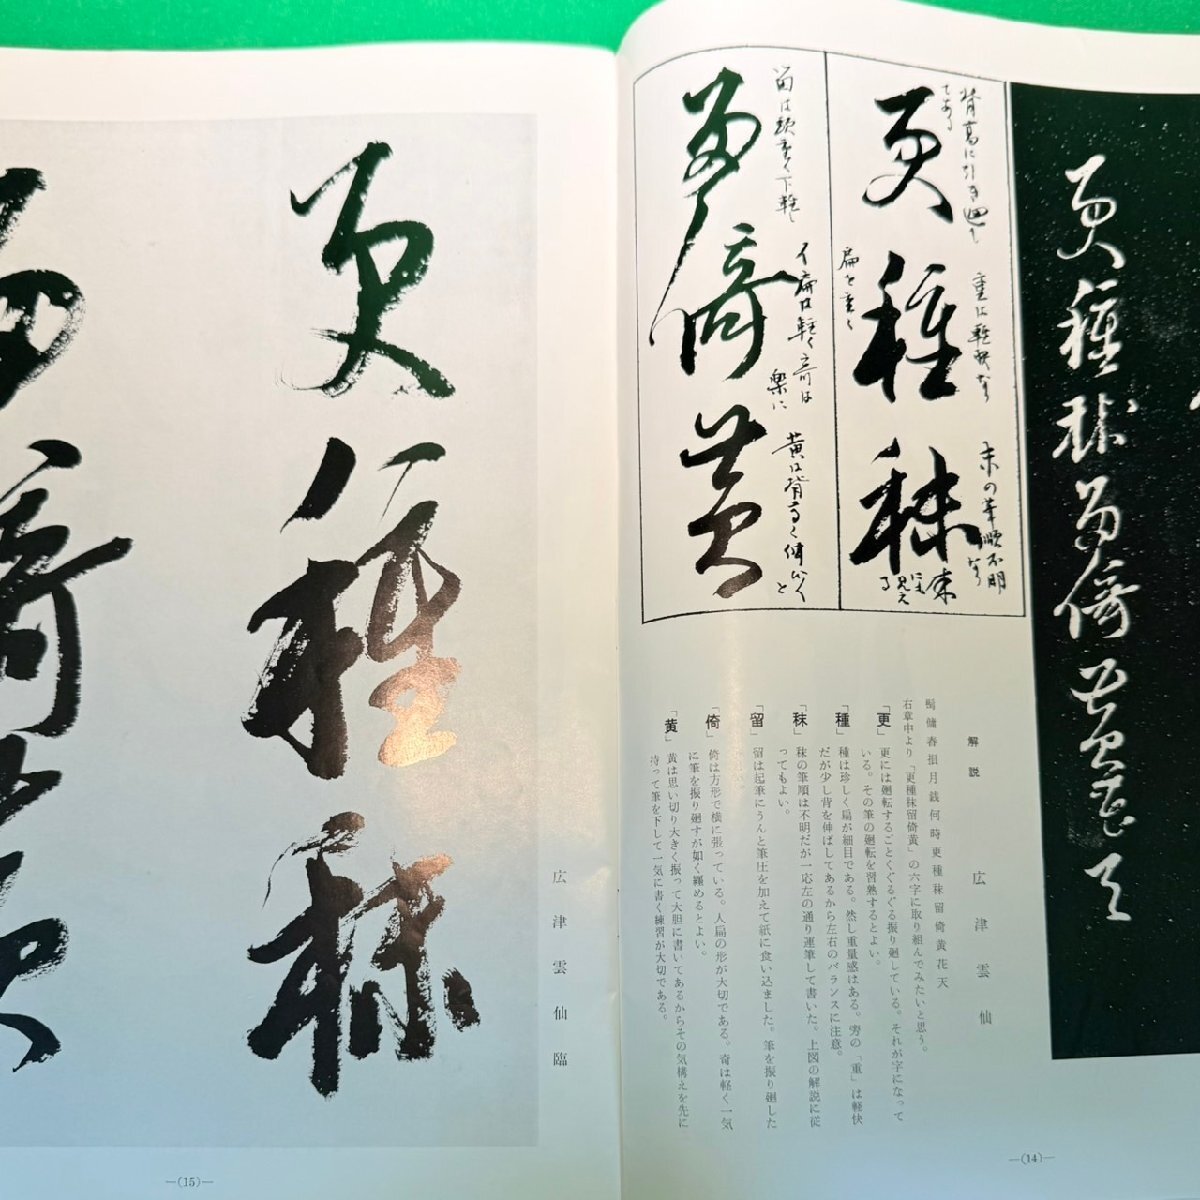 更種秣留倚黄花天
更種秣
背高に引き廻してある
扁を重く
重は軽快なり
末の筆順不明なり
留倚黄
イ扁は軽く奇は楽に
解説
広津雲仙
鬢傭春損月銭何時更種秣留倚黄花天
右章中より「更種秣留倚黄」の六字に取り組んでみたいと思う。
「更」更には廻転することくぐるぐる振り廻している。それが字になって
いる。その筆の廻転を習熟するとよい。
「種」種は珍しく扁が細目である。然し重量感はある。旁の「重」は軽快
だが少し背を伸ばしてあるから左右のバランスに注意。
「秣」秣の筆順は不明だが一応左の通り運筆して書いた。上図の解説に従
ってもよい。
「留」留は起筆にうんと筆圧を加えて紙に食い込ました。筆を振り廻した
「倚」倚は方形で横に張っている。人扁の形が大切である。奇は軽く一気
に筆を振り廻すが如く纒めるとよい。
「黄」黄は思い切り大きく振って大胆に書いてあるからその気構えを先に
持って筆を下して一気に書く練習が大切である。
—(14)—
更種秣
留倚黄
広津雲仙臨
—(15)—